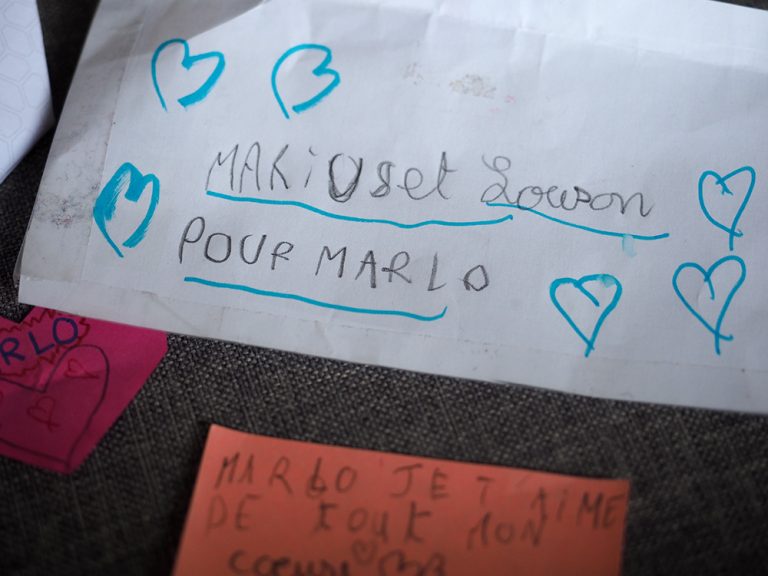 MARiUS et Lowson
POUR MARLO
RLO
MARLO JE T'AIME
DE tout MON
cœur